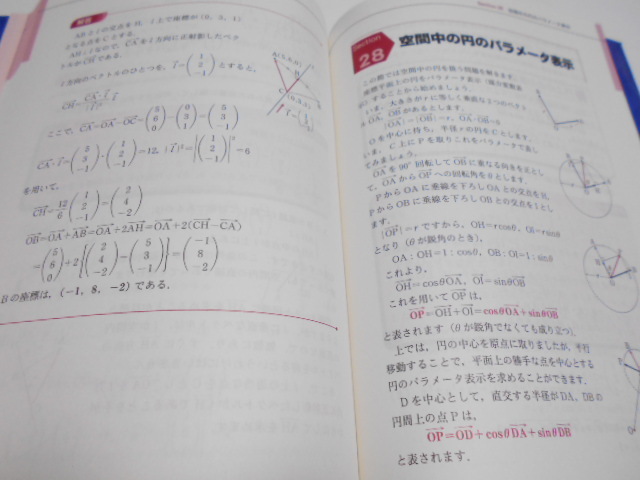 解答
ABとlの交点をH，l上で座標が(0, 3, 1)
となる点をCとする．
AH⊥lなので，CAをl方向に正射影したベク
トルがCHである．
l方向のベクトルのひとつを，l=(1 2 −1)とすると，
CH=CA·l/|l|² l
ここで，CA=OA−OC=(5 6 0)−(0 3 1)=(5 3 −1)
CA·l=(5 3 −1)·(1 2 −1)=12，|l|²=|(1 2 −1)|²=6
を用いて，
CH=12/6(1 2 −1)=(2 4 −2)
OB=OA+AB=OA+2AH=OA+2(CH−CA)
=(5 6 0)+2{(2 4 −2)−(5 3 −1)}=(−1 8 −2)
Bの座標は，(−1, 8, −2)である．
Section
28
空間中の円のパラメータ表示
この節では空間中の円を扱う問題を解きます．
座標平面上の円をパラメータ表示(媒介変数表
示)することから始めましょう．
いま，大きさがrに等しく垂直な2つのベクト
ルOA，OBがあるとします．
|OA|=|OB|=r，OA·OB=0
Oを中心に持ち，半径rの円をCとします．
いま，C上にPを取りこれをパラメータで表し
てみましょう．
OAを90°回転してOBに重なる向きを正とし
て，OAからOPへの回転角をθとします．
PからOAに垂線を下ろしOAとの交点をH，
PからOBに垂線を下ろしOBとの交点をIとし
ます．
|OP|=rですから，OH=rcosθ，OI=rsinθ
となり(θが鋭角のとき)，
OA：OH=1：cosθ，OB：OI=1：sinθ
これより，
OH=cosθOA，OI=sinθOB
これを用いてOPは，
OP=OH+OI=cosθOA+sinθOB
と表されます(θが鋭角でなくても成り立つ)．
上では，円の中心を原点に取りましたが，平行
移動することで，平面上の勝手な点を中心とする
円のパラメータ表示を求めることができます．
Dを中心として，直交する半径がDA，DBの
円周上の点Pは，
OP=OD+cosθDA+sinθDB
と表されます．